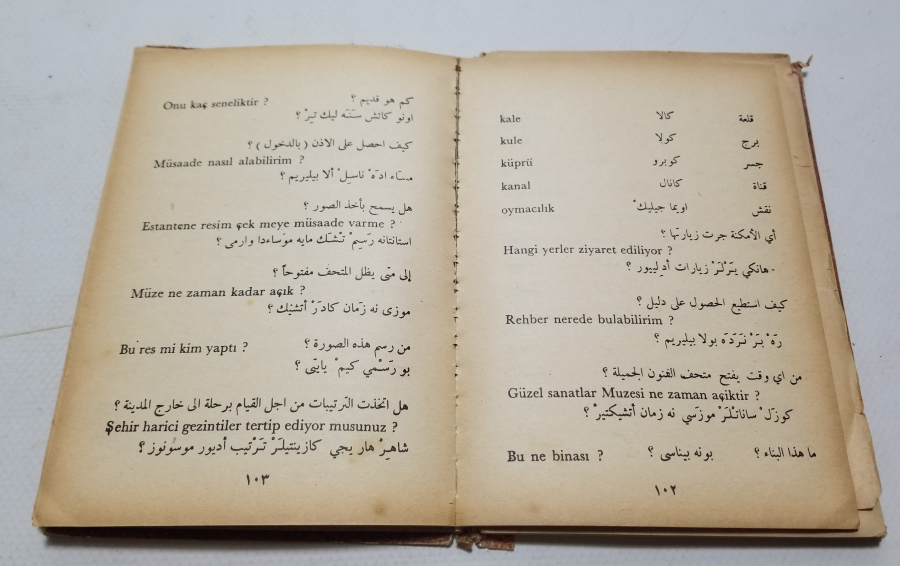 kale كالا قلعة
kule كولا برج
küprü كوبرو جسر
kanal كانال قناة
oymacılık اويما جيليكْ نقش
أي الأمكنة جرت زيارتها ؟
Hangi yerler ziyaret ediliyor ?
هانكي يَرْلَرْ زيارات أدلييور ؟
كيف استطيع الحصول على دليل ؟
Rehber nerede bulabilirim ?
رَهْ بَرْ نَرَدَه بولا بيليريم ؟
من اي وقت يفتح متحف الفنون الجميلة ؟
Güzel sanatlar Muzesi ne zaman açiktir ?
كوزَلْ ساناتْلَرْ موزَسي نه زمان أتشيكتيرْ ؟
ما هذا البناء ؟ بونه بيناسى ؟ Bu ne binası ?
١٠٢
كم هو قديم ؟
Onu kaç seneliktir ?
اونو كاتش سَنَه ليك تيرْ ؟
كيف احصل على الاذن ( بالدخول ) ؟
Müsaade nasıl alabilirim ?
مساء ادَهْ ناسيلْ ألا بيليريم ؟
هل يسمح بأخذ الصور ؟
Estantene resim çek meye müsaade varme ?
استانتانه رَسِمْ تشَك مايه موساءدا وارمى ؟
إلى متى يظل المتحف مفتوحاً ؟
Müze ne zaman kadar açık ?
موزى نه زَمان كادَرْ أتشيك ؟
من رسم هذه الصورة ؟
Bu res mi kim yaptı ?
بو رَسْمي كيمْ ياپتى ؟
هل اتخذت الترتيبات من اجل القيام برحلة الى خارج المدينة ؟
Şehir harici gezintiler tertip ediyor musunuz ?
شاهِرْ هار يجي كازينتيلَرْ تَرْتيب أديور موسونوز ؟
١٠٣